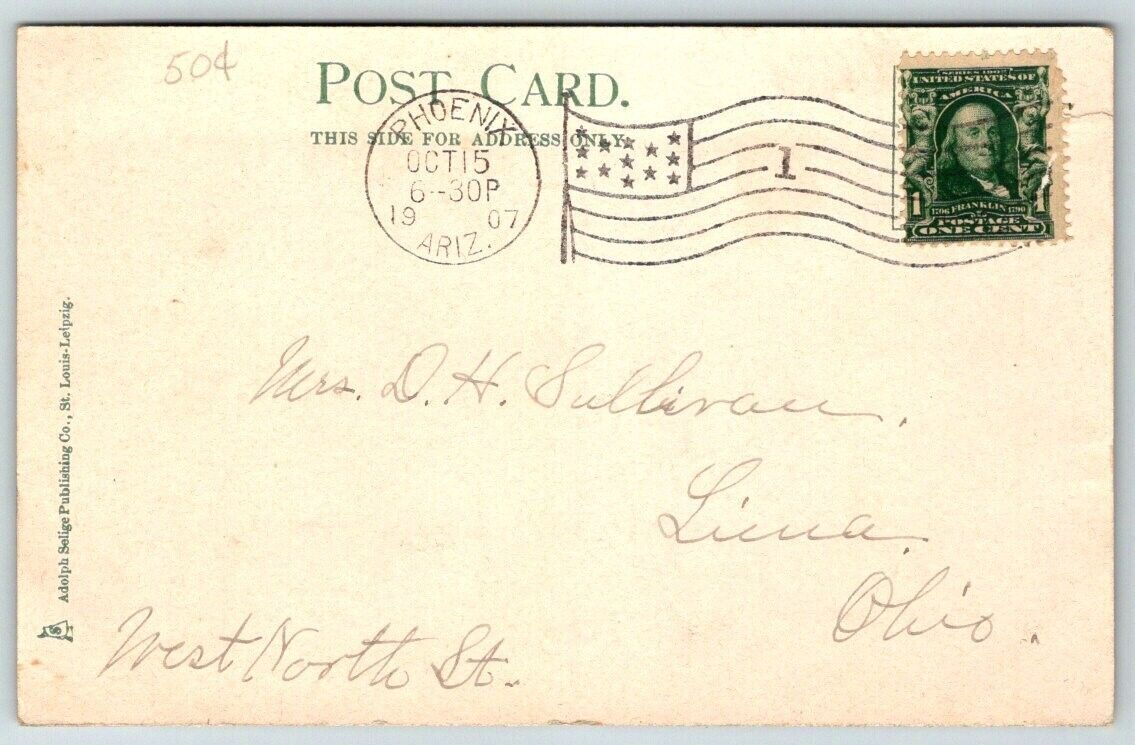 50¢
POST CARD.
THIS SIDE FOR ADDRESS ONLY.
PHOENIX
OCT 15
6-30P
1907
ARIZ.
1
SERIES 1902
UNITED STATES OF
AMERICA
1 1
1706 FRANKLIN 1790
POSTAGE
ONE CENT
Mrs. D. H. Sullivan,
Lima,
Ohio.
West North St.
Adolph Selige Publishing Co., St. Louis-Leipzig.